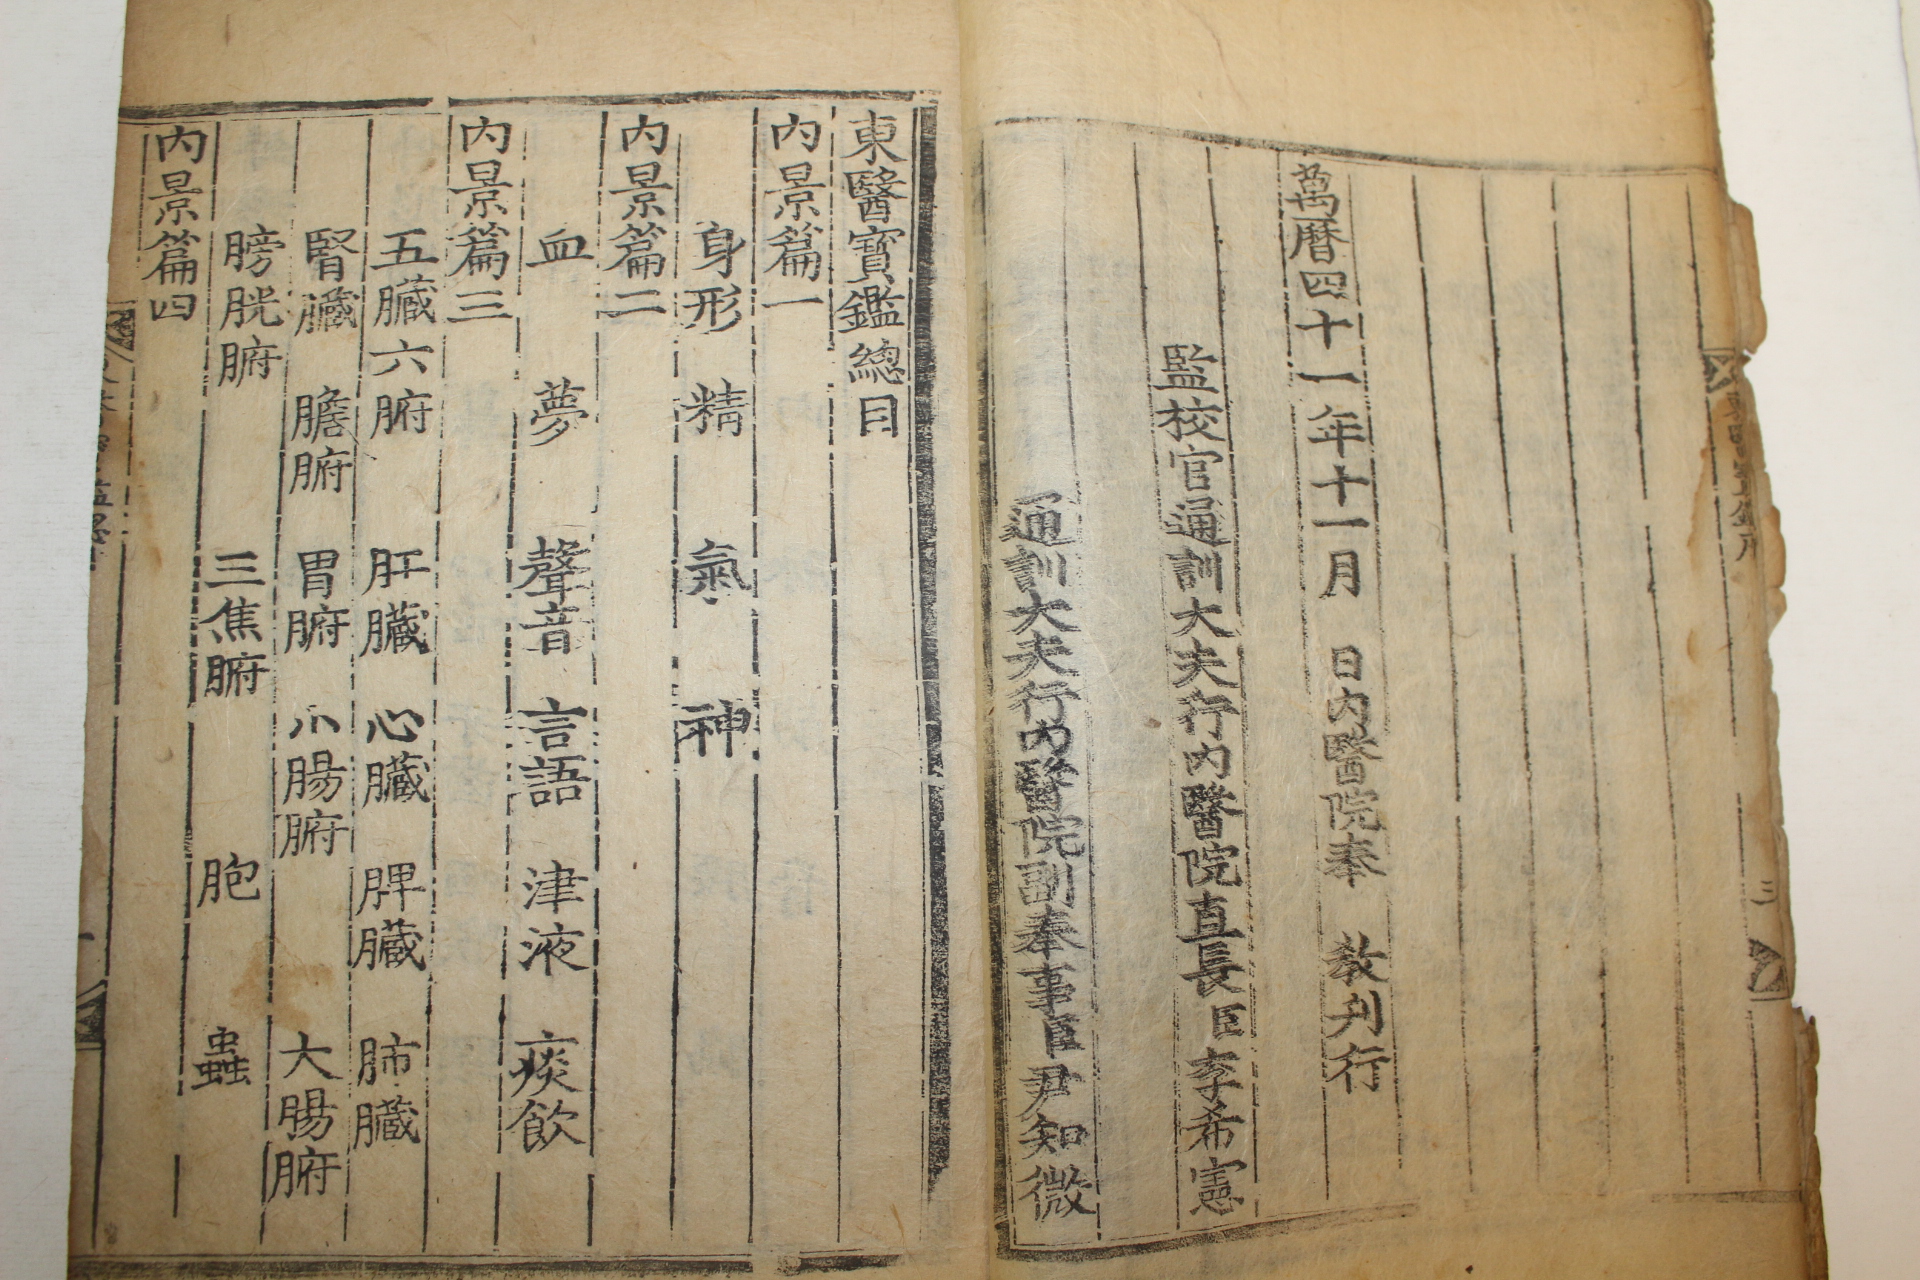 萬曆四十一年十一月 日內醫院奉 敎刋行
監校官通訓大夫行內醫院直長臣李希憲
通訓大夫行內醫院副奉事臣尹知微
東醫寶鑑總目
內景篇一
身形 精 氣 神
內景篇二
血 夢 聲音 言語 津液 痰飮
內景篇三
五臟六腑 肝臟 心臟 脾臟 肺臟
腎臟 膽腑 胃腑 小腸腑 大腸腑
膀胱腑 三焦腑 胞 蟲
內景篇四